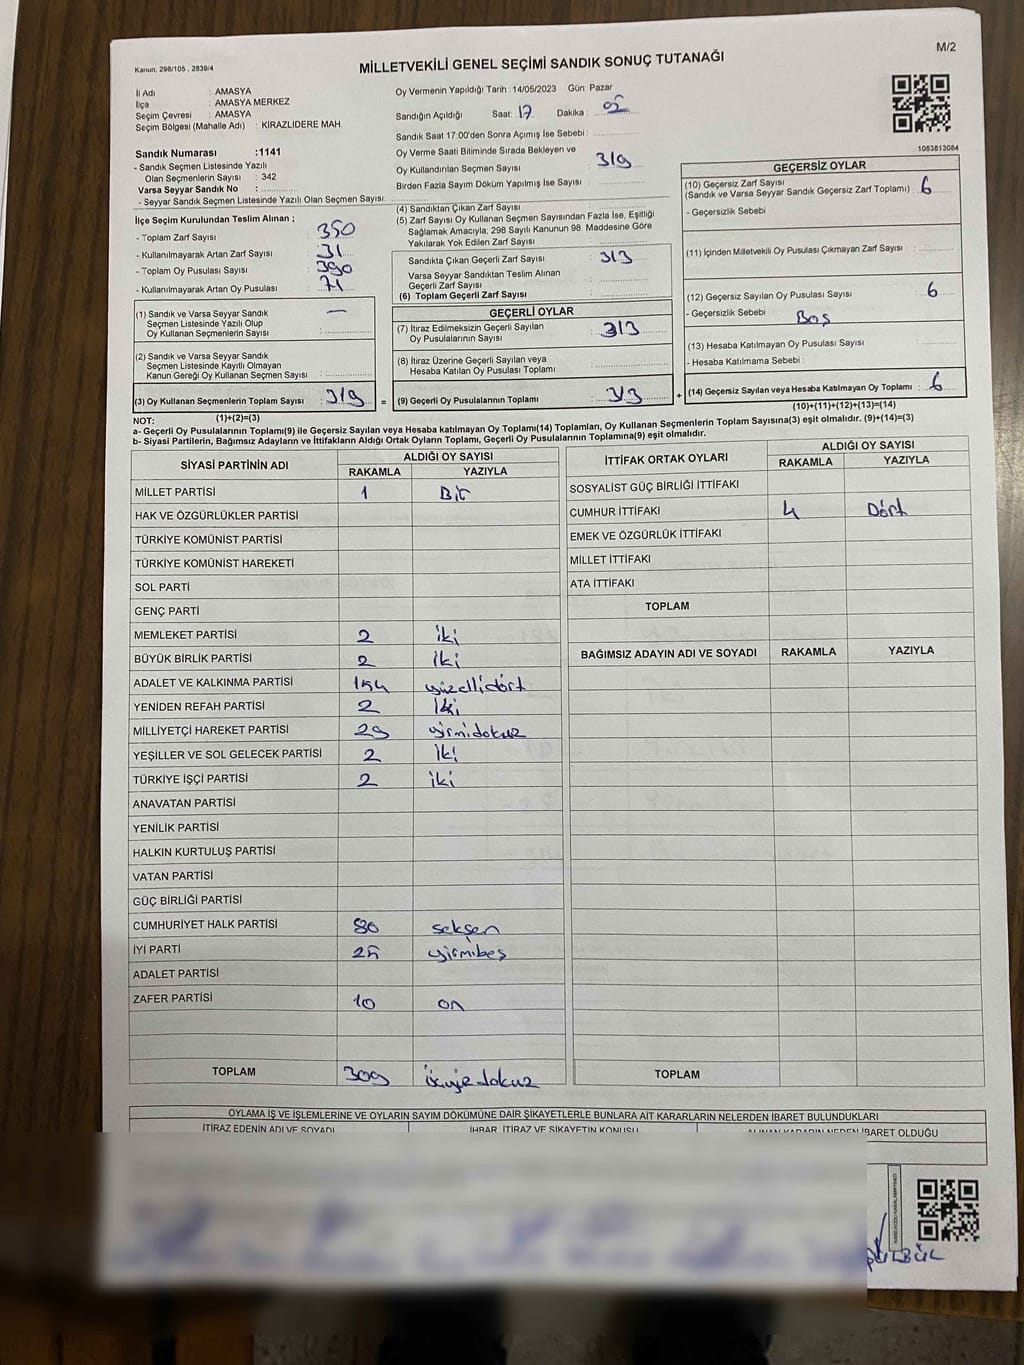 M/2
Kanun, 298/105 , 2839/4
MİLLETVEKİLİ GENEL SEÇİMİ SANDIK SONUÇ TUTANAĞI
İl Adı : AMASYA
İlçe : AMASYA MERKEZ
Seçim Çevresi : AMASYA
Seçim Bölgesi (Mahalle Adı) : KİRAZLIDERE MAH.
Sandık Numarası :1141
- Sandık Seçmen Listesinde Yazılı
Olan Seçmenlerin Sayısı : 342
Varsa Seyyar Sandık No :
- Seyyar Sandık Seçmen Listesinde Yazılı Olan Seçmen Sayısı:
Oy Vermenin Yapıldığı Tarih :14/05/2023 Gün: Pazar
Sandığın Açıldığı Saat: 17 Dakika : 05
Sandık Saat 17:00'den Sonra Açımış İse Sebebi :
Oy Verme Saati Bitiminde Sırada Bekleyen ve
Oy Kullandırılan Seçmen Sayısı : 319
Birden Fazla Sayım Döküm Yapılmış İse Sayısı :
1083813084
İlçe Seçim Kurulundan Teslim Alınan ;
- Toplam Zarf Sayısı : 350
- Kullanılmayarak Artan Zarf Sayısı : 31
- Toplam Oy Pusulası Sayısı : 390
- Kullanılmayarak Artan Oy Pusulası : 71
(1) Sandık ve Varsa Seyyar Sandık
Seçmen Listesinde Yazılı Olup
Oy Kullanan Seçmenlerin Sayısı : —
(2) Sandık ve Varsa Seyyar Sandık
Seçmen Listesinde Kayıtlı Olmayan
Kanun Gereği Oy Kullanan Seçmen Sayısı :
(3) Oy Kullanan Seçmenlerin Toplam Sayısı : 319 =
(1)+(2)=(3)
(4) Sandıktan Çıkan Zarf Sayısı :
(5) Zarf Sayısı Oy Kullanan Seçmen Sayısından Fazla İse, Eşitliği
Sağlamak Amacıyla; 298 Sayılı Kanunun 98. Maddesine Göre
Yakılarak Yok Edilen Zarf Sayısı :
Sandıkta Çıkan Geçerli Zarf Sayısı : 313
Varsa Seyyar Sandıktan Teslim Alınan
Geçerli Zarf Sayısı :
(6) Toplam Geçerli Zarf Sayısı :
GEÇERLİ OYLAR
(7) İtiraz Edilmeksizin Geçerli Sayılan
Oy Pusulalarının Sayısı : 313
(8) İtiraz Üzerine Geçerli Sayılan veya
Hesaba Katılan Oy Pusulası Toplamı :
(9) Geçerli Oy Pusulalarının Toplamı : 313 +
GEÇERSİZ OYLAR
(10) Geçersiz Zarf Sayısı
(Sandık ve Varsa Seyyar Sandık Geçersiz Zarf Toplamı) : 6
- Geçersizlik Sebebi
(11) İçinden Milletvekili Oy Pusulası Çıkmayan Zarf Sayısı :
(12) Geçersiz Sayılan Oy Pusulası Sayısı : 6
- Geçersizlik Sebebi : Boş
(13) Hesaba Katılmayan Oy Pusulası Sayısı :
- Hesaba Katılmama Sebebi :
(14) Geçersiz Sayılan veya Hesaba Katılmayan Oy Toplamı : 6
(10)+(11)+(12)+(13)=(14)
NOT:
a- Geçerli Oy Pusulalarının Toplamı(9) ile Geçersiz Sayılan veya Hesaba Katılmayan Oy Toplamı(14) Toplamları, Oy Kullanan Seçmenlerin Toplam Sayısına(3) eşit olmalıdır. (9)+(14)=(3)
b- Siyasi Partilerin, Bağımsız Adayların ve İttifakların Aldığı Ortak Oyların Toplamı, Geçerli Oy Pusulalarının Toplamına(9) eşit olmalıdır.
SİYASİ PARTİNİN ADI ALDIĞI OY SAYISI
RAKAMLA YAZIYLA
MİLLET PARTİSİ 1 Bir
HAK VE ÖZGÜRLÜKLER PARTİSİ
TÜRKİYE KOMÜNİST PARTİSİ
TÜRKİYE KOMÜNİST HAREKETİ
SOL PARTİ
GENÇ PARTİ
MEMLEKET PARTİSİ 2 iki
BÜYÜK BİRLİK PARTİSİ 2 iki
ADALET VE KALKINMA PARTİSİ 154 yüzellidört
YENİDEN REFAH PARTİSİ 2 iki
MİLLİYETÇİ HAREKET PARTİSİ 29 yirmidokuz
YEŞİLLER VE SOL GELECEK PARTİSİ 2 iki
TÜRKİYE İŞÇİ PARTİSİ 2 iki
ANAVATAN PARTİSİ
YENİLİK PARTİSİ
HALKIN KURTULUŞ PARTİSİ
VATAN PARTİSİ
GÜÇ BİRLİĞİ PARTİSİ
CUMHURİYET HALK PARTİSİ 80 seksen
İYİ PARTİ 25 yirmibeş
ADALET PARTİSİ
ZAFER PARTİSİ 10 on
TOPLAM 309 üçyüz dokuz
İTTİFAK ORTAK OYLARI ALDIĞI OY SAYISI
RAKAMLA YAZIYLA
SOSYALİST GÜÇ BİRLİĞİ İTTİFAKI
CUMHUR İTTİFAKI 4 Dört
EMEK VE ÖZGÜRLÜK İTTİFAKI
MİLLET İTTİFAKI
ATA İTTİFAKI
TOPLAM
BAĞIMSIZ ADAYIN ADI VE SOYADI RAKAMLA YAZIYLA
TOPLAM
OYLAMA İŞ VE İŞLEMLERİNE VE OYLARIN SAYIM DÖKÜMÜNE DAİR ŞİKAYETLERLE BUNLARA AİT KARARLARIN NELERDEN İBARET BULUNDUKLARI
İTİRAZ EDENİN ADI VE SOYADI İHBAR, İTİRAZ VE ŞİKAYETİN KONUSU ALINAN KARARIN NEDEN İBARET OLDUĞU